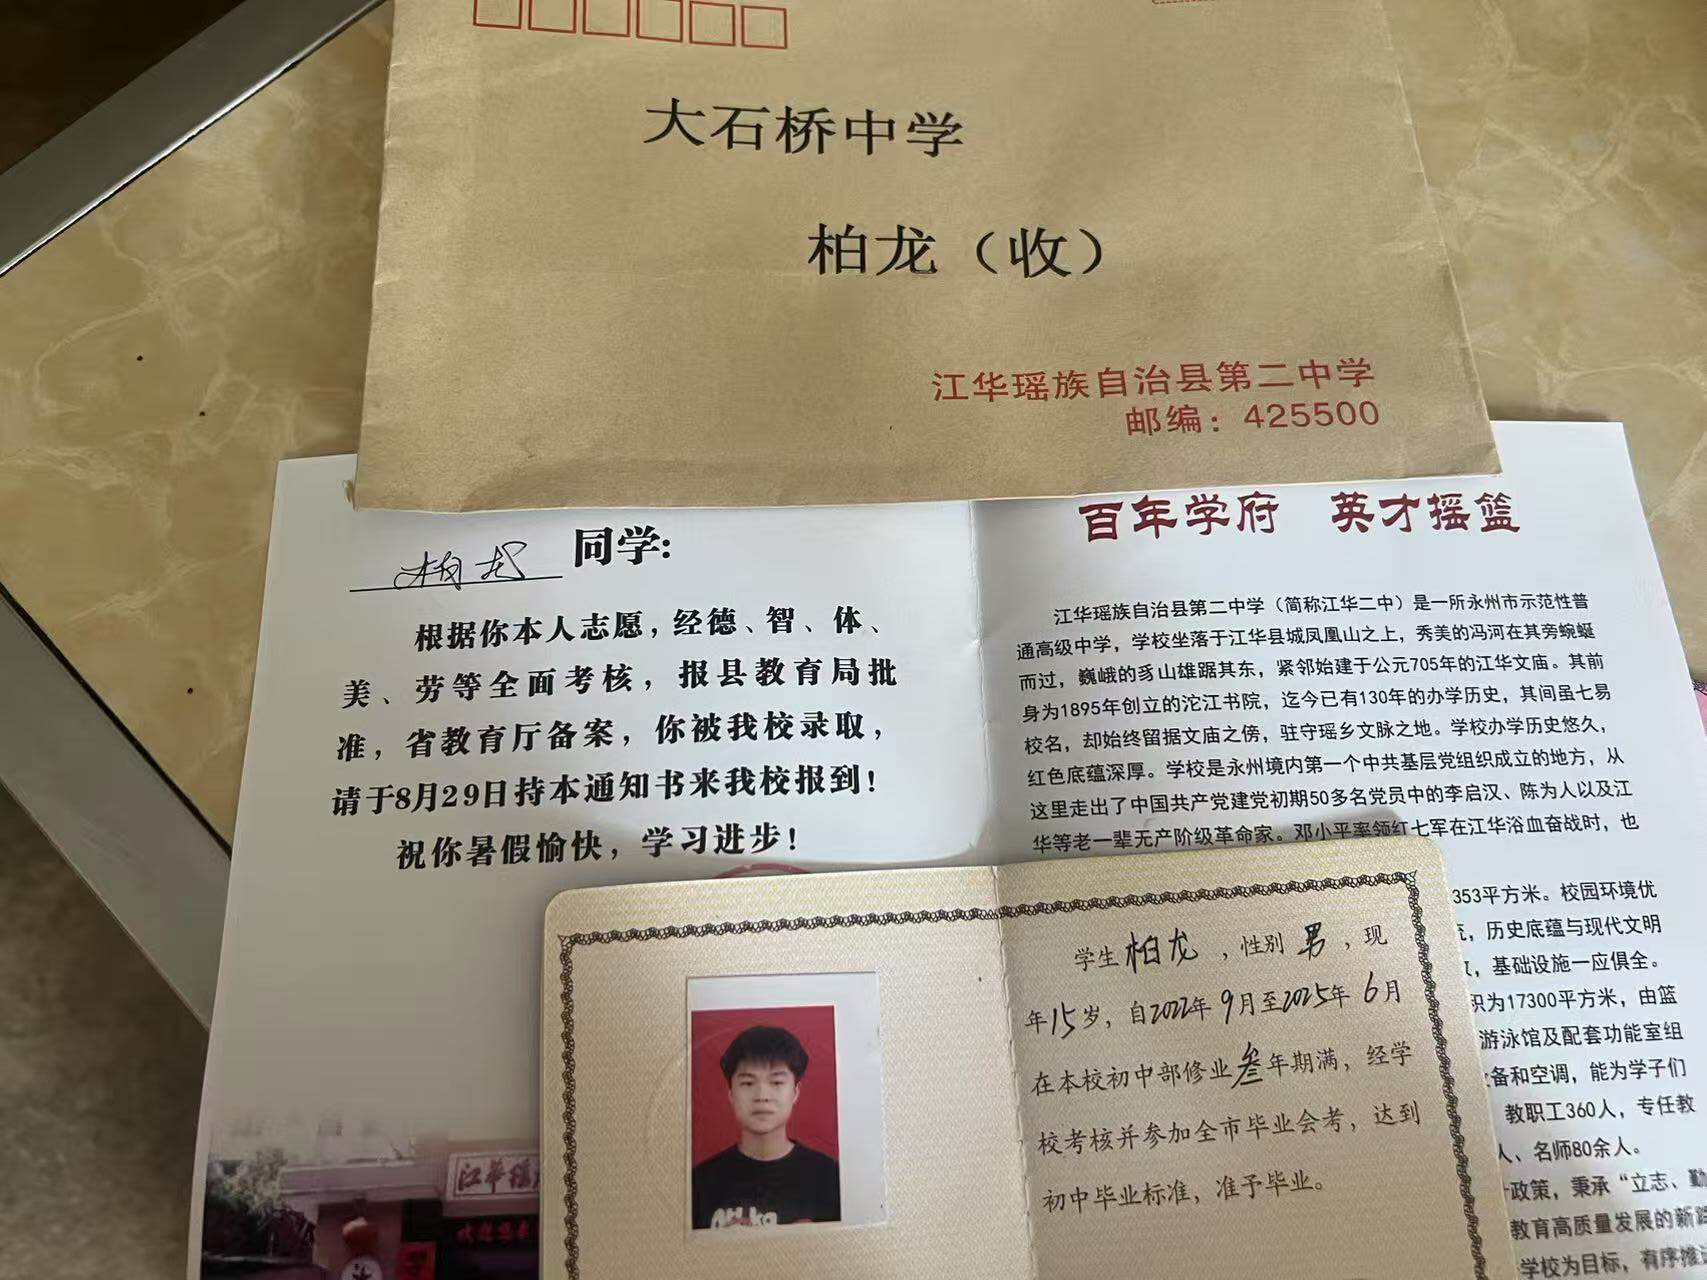 大石桥中学
柏龙（收）
江华瑶族自治县第二中学
邮编：425500
柏龙 同学：
根据你本人志愿，经德、智、体、
美、劳等全面考核，报县教育局批
准，省教育厅备案，你被我校录取，
请于8月29日持本通知书来我校报到！
祝你暑假愉快，学习进步！
百年学府 英才摇篮
江华瑶族自治县第二中学（简称江华二中）是一所永州市示范性普
通高级中学，学校坐落于江华县城凤凰山之上，秀美的冯河在其旁蜿蜒
而过，巍峨的豸山雄踞其东，紧邻始建于公元705年的江华文庙。其前
身为1895年创立的沱江书院，迄今已有130年的办学历史，其间虽七易
校名，却始终留据文庙之傍，驻守瑶乡文脉之地。学校办学历史悠久，
红色底蕴深厚。学校是永州境内第一个中共基层党组织成立的地方，从
这里走出了中国共产党建党初期50多名党员中的李启汉、陈为人以及江
华等老一辈无产阶级革命家。邓小平率领红七军在江华浴血奋战时，也
353平方米。校园环境优
，历史底蕴与现代文明
，基础设施一应俱全。
积为17300平方米，由篮
游泳馆及配套功能室组
备和空调，能为学子们
教职工360人，专任教
人、名师80余人。
政策，秉承“立志、勤
教育高质量发展的新
学校为目标，有序推
学生柏龙，性别男，现
年15岁，自2022年9月至2025年6月
在本校初中部修业叁年期满，经学
校考核并参加全市毕业会考，达到
初中毕业标准，准予毕业。
江华瑶